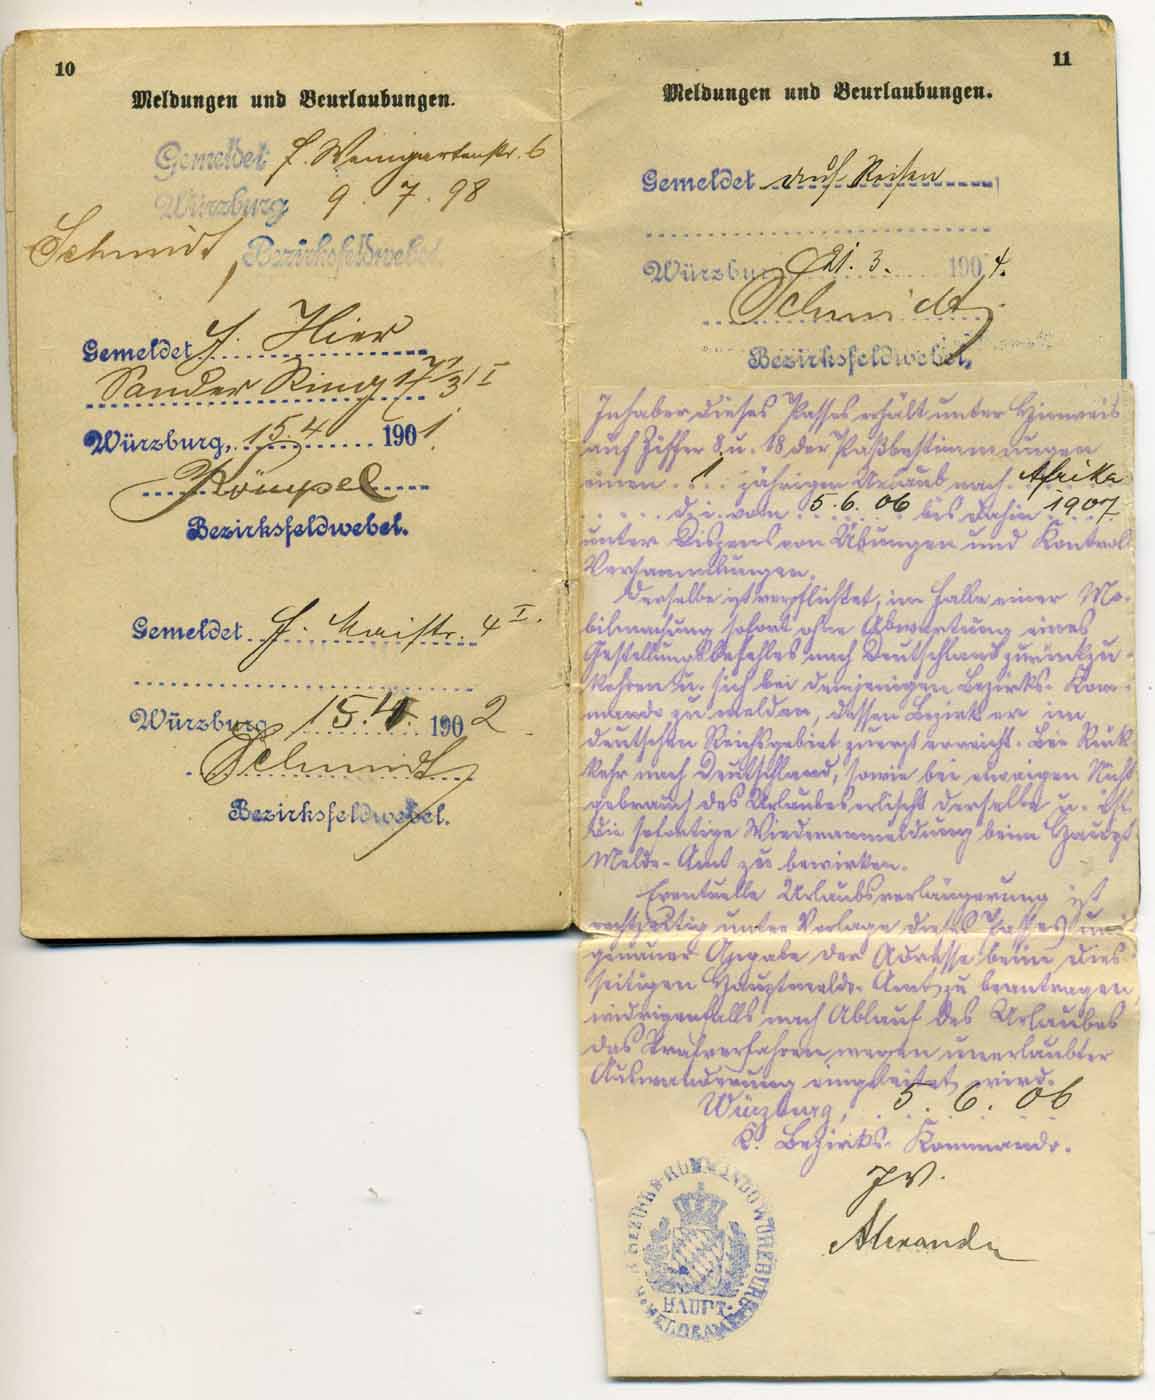 10
Meldungen und Beurlaubungen.
Gemeldet: f. Weingartenstr. 6
Würzburg 9. 7. 98
Schmidt, Bezirksfeldwebel.
Gemeldet f. Hier
Sander Ring 17/3 I
Würzburg, 15.4 1901.
Römpel
Bezirksfeldwebel.
Gemeldet f. Maistr. 4 I.
Würzburg 15.4. 1902
Schmidt
Bezirksfeldwebel.
11
Meldungen und Beurlaubungen.
Gemeldet auf Reisen
Würzburg 21. 3. 1904.
Schmidt
Bezirksfeldwebel.
Inhaber dieses Passes erhält unter Hinweis
auf Ziffer 8 u. 18 der Paßbestimmungen
einen 1 jährigen Urlaub nach Afrika
d. i. vom 5. 6. 06 bis dahin 1907
unter Dispens von Übungen und Kontrol-
Versammlungen.
Derselbe ist verpflichtet, im Falle einer Mo-
bilmachung sofort ohne Abwartung eines
Gestellungsbefehles nach Deutschland zurückzu-
kehren u. sich bei demjenigen Bezirks-Kom-
mando zu melden, dessen Bezirk er im
deutschen Reichsgebiet zuerst erreicht. Bei Rück-
kehr nach Deutschland, sowie bei etwaigen Nicht-
gebrauch des Urlaubes erlischt derselbe u. ist
die sofortige Wiederanmeldung beim Haupt-
Melde-Amt zu bewirken.
Eventuelle Urlaubsverlängerung ist
rechtzeitig unter Vorlage dieses Passes und
genauer Angabe der Adresse beim dies-
seitigen Hauptmelde-Amt zu beantragen,
widrigenfalls nach Ablauf des Urlaubes
das Strafverfahren wegen unerlaubter
Auswanderung eingeleitet wird.
Würzburg, 5. 6. 06
K. Bezirks-Kommando.
J.V.
Alexander
K. BEZIRKS-KOMMANDO WÜRZBURG
HAUPT-
MELDEAMT